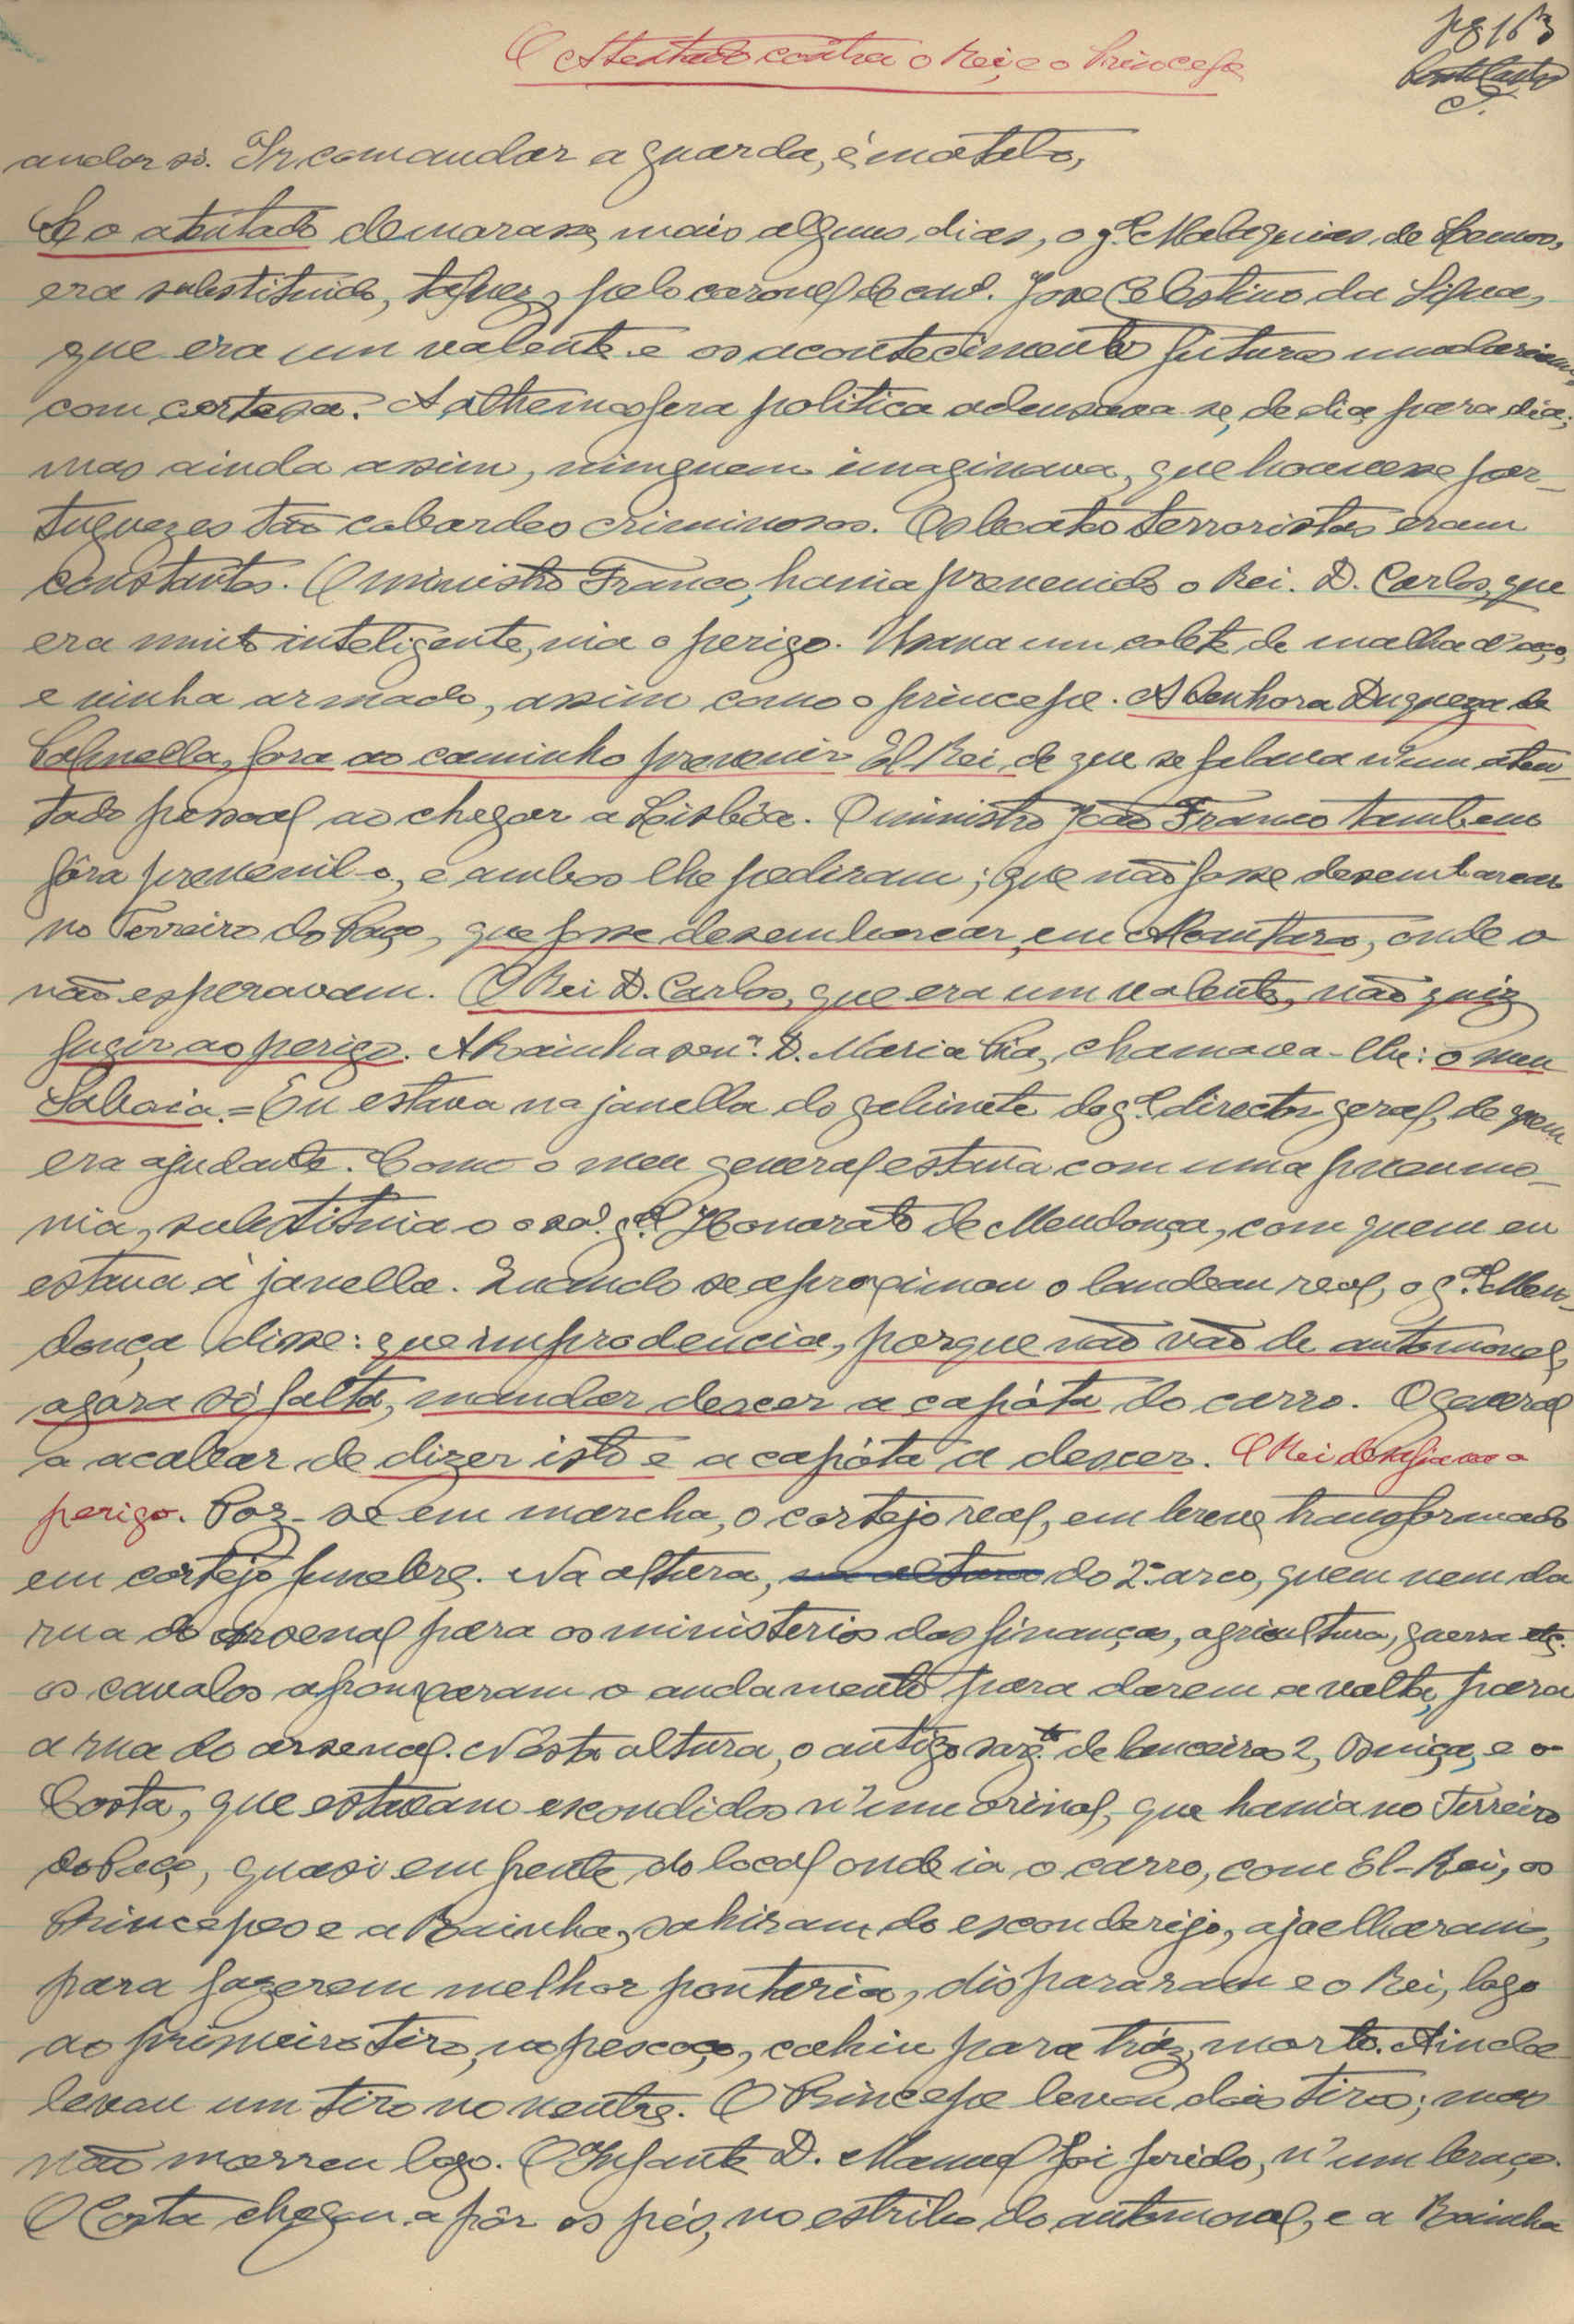 O Atentado contra o Rei, e o Princepe
pg 163
andar só. Ir comandar a guarda, é matalo,
Se o atentado demorasse, mais alguns dias, o g.al Malaquias de Lemos,
era substituido, talvez, pelo coronel de cav.a José Celestino da Silva,
que era um valente e os acontecimentos futuros mudariam,
com certesa. A athemosfera politica adensava-se, de dia, para dia,
mas ainda assim, ninguem imaginava, que houvesse por-
tuguezes tão cobardes criminosos. Os boatos terroristas eram
constantes. O ministro Franco, havia prevenido o Rei. D. Carlos, que
era muito inteligente, via o perigo. Usava um colete de malha d'aço,
e vinha armado, assim como o princepe. A Senhora Duqueza de
Palmella, fora ao caminho prevenir El Rei, de que se falava n'um aten-
tado pessoal ao chegar a Lisbôa. O ministro João Franco tambem
fôra prevenil-o, e ambos lhe pediram; que não fosse desembarcar
no Terreiro do Paço, que fosse desembarcar, em Alcantara, onde o
não esperavam. O Rei D. Carlos, que era um valente, não quiz
fugir ao perigo. A Rainha sen.ra D. Maria Pia, chamava-lhe: o meu
Saboia. = Eu estava na janella do gabinete do g.al director geral, de quem
era ajudante. Como o meu general estava com uma pneumo-
nia, substituia o o g.al Honorato de Mendonça, com quem eu
estava á janella. Quando se aproximou o landeau real, o g.al Men-
donça disse: que imprudencia, porque não vão de automovel,
agora só falta, mandar descer a capóta do carro. O general
a acabar de dizer isto e a capóta a descer. O Rei desafiava o
perigo. Poz-se em marcha, o cortejo real, em breve, transformado
em cortejo funebre. Na altura, na altura do 2.º arco, quem vem da
rua do arsenal para os ministerios das finanças, agricultura, guerra etc.
os cavalos afrouxaram o andamento para darem a volta, para
a rua do arsenal. N'esta altura, o antigo sarg.to de lanceiros 2, Buiça, e o
Costa, que estavam escondidos n'um orinol, que havia no Terreiro
do Paço, quasi em frente do local onde ia o carro, com El-Rei, os
Princepes e a Rainha, sahiram do esconderijo, ajoelharam,
para fazerem melhor pontaria, dispararam e o Rei, logo
ao primeiro tiro, no pescoço, cahiu para traz, morto. Ainda
levou um tiro no ventre. O Princepe levou dois tiros; mas
não morreu logo. O Infante D. Manuel foi ferido, n'um braço.
O Costa chegou a pôr os pés, no estribo do automovel, e a Rainha